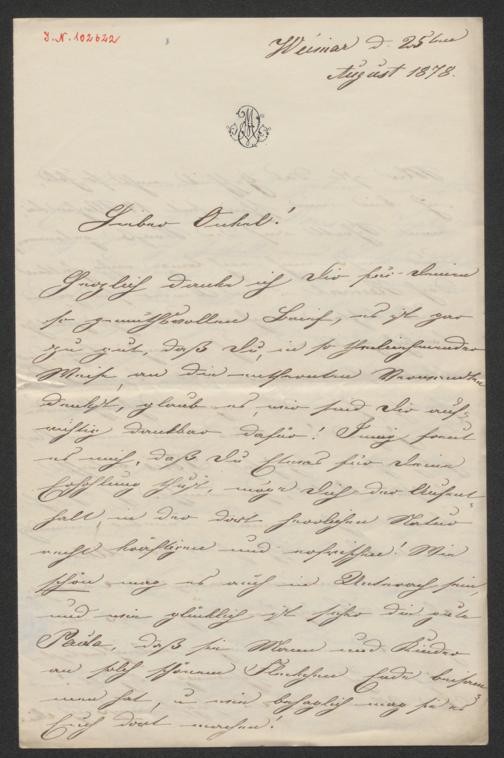 J. N. 102622
Weimar d. 25ten
August 1878.
Lieber Onkel!
Herzlich danke ich Dir für Deinen
so gemüthvollen Brief, es ist gar
zu gut, daß Du, in so theilnehmender
Weise, an die entfernten Verwandten
denkst, glaub es, wir sind Dir auf-
richtig dankbar dafür! Innig freut
es mich, daß Du Etwas für Deine
Erholung thust, möge Dich der Aufent-
halt, in der dort herrlichen Natur
recht kräftigen und erfrischen! Wie
schön mag es auch in Unterach sein,
und wie glücklich ist sicher die gute
Paula, daß sie Mann und Kinder
an solch schönem Fleckchen Erde beisam-
men hat, u wie behaglich mag sie es
Euch dort machen!